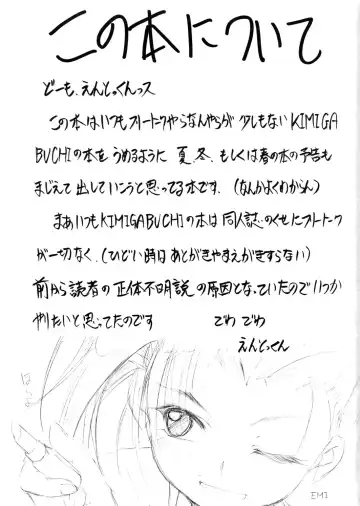 この本について
どーも、えんどっくんっス
この本はいつもフリートークやらなんやらが少しもないKIMIGA
BUCHIの本をうめるように夏、冬、もしくは春の本の予告も
まじえて出していこうと思ってる本です。(なんかよくわからん)
まあいつもKIMIGABUCHIの本は同人誌のくせにフリートーク
が一切なく、(ひどい時はあとがきやまえがきすらない)
前から読者の正体不明説の原因となっていたのでいつか
やりたいと思ってたのです でわでわ
えんどっくん
EMI